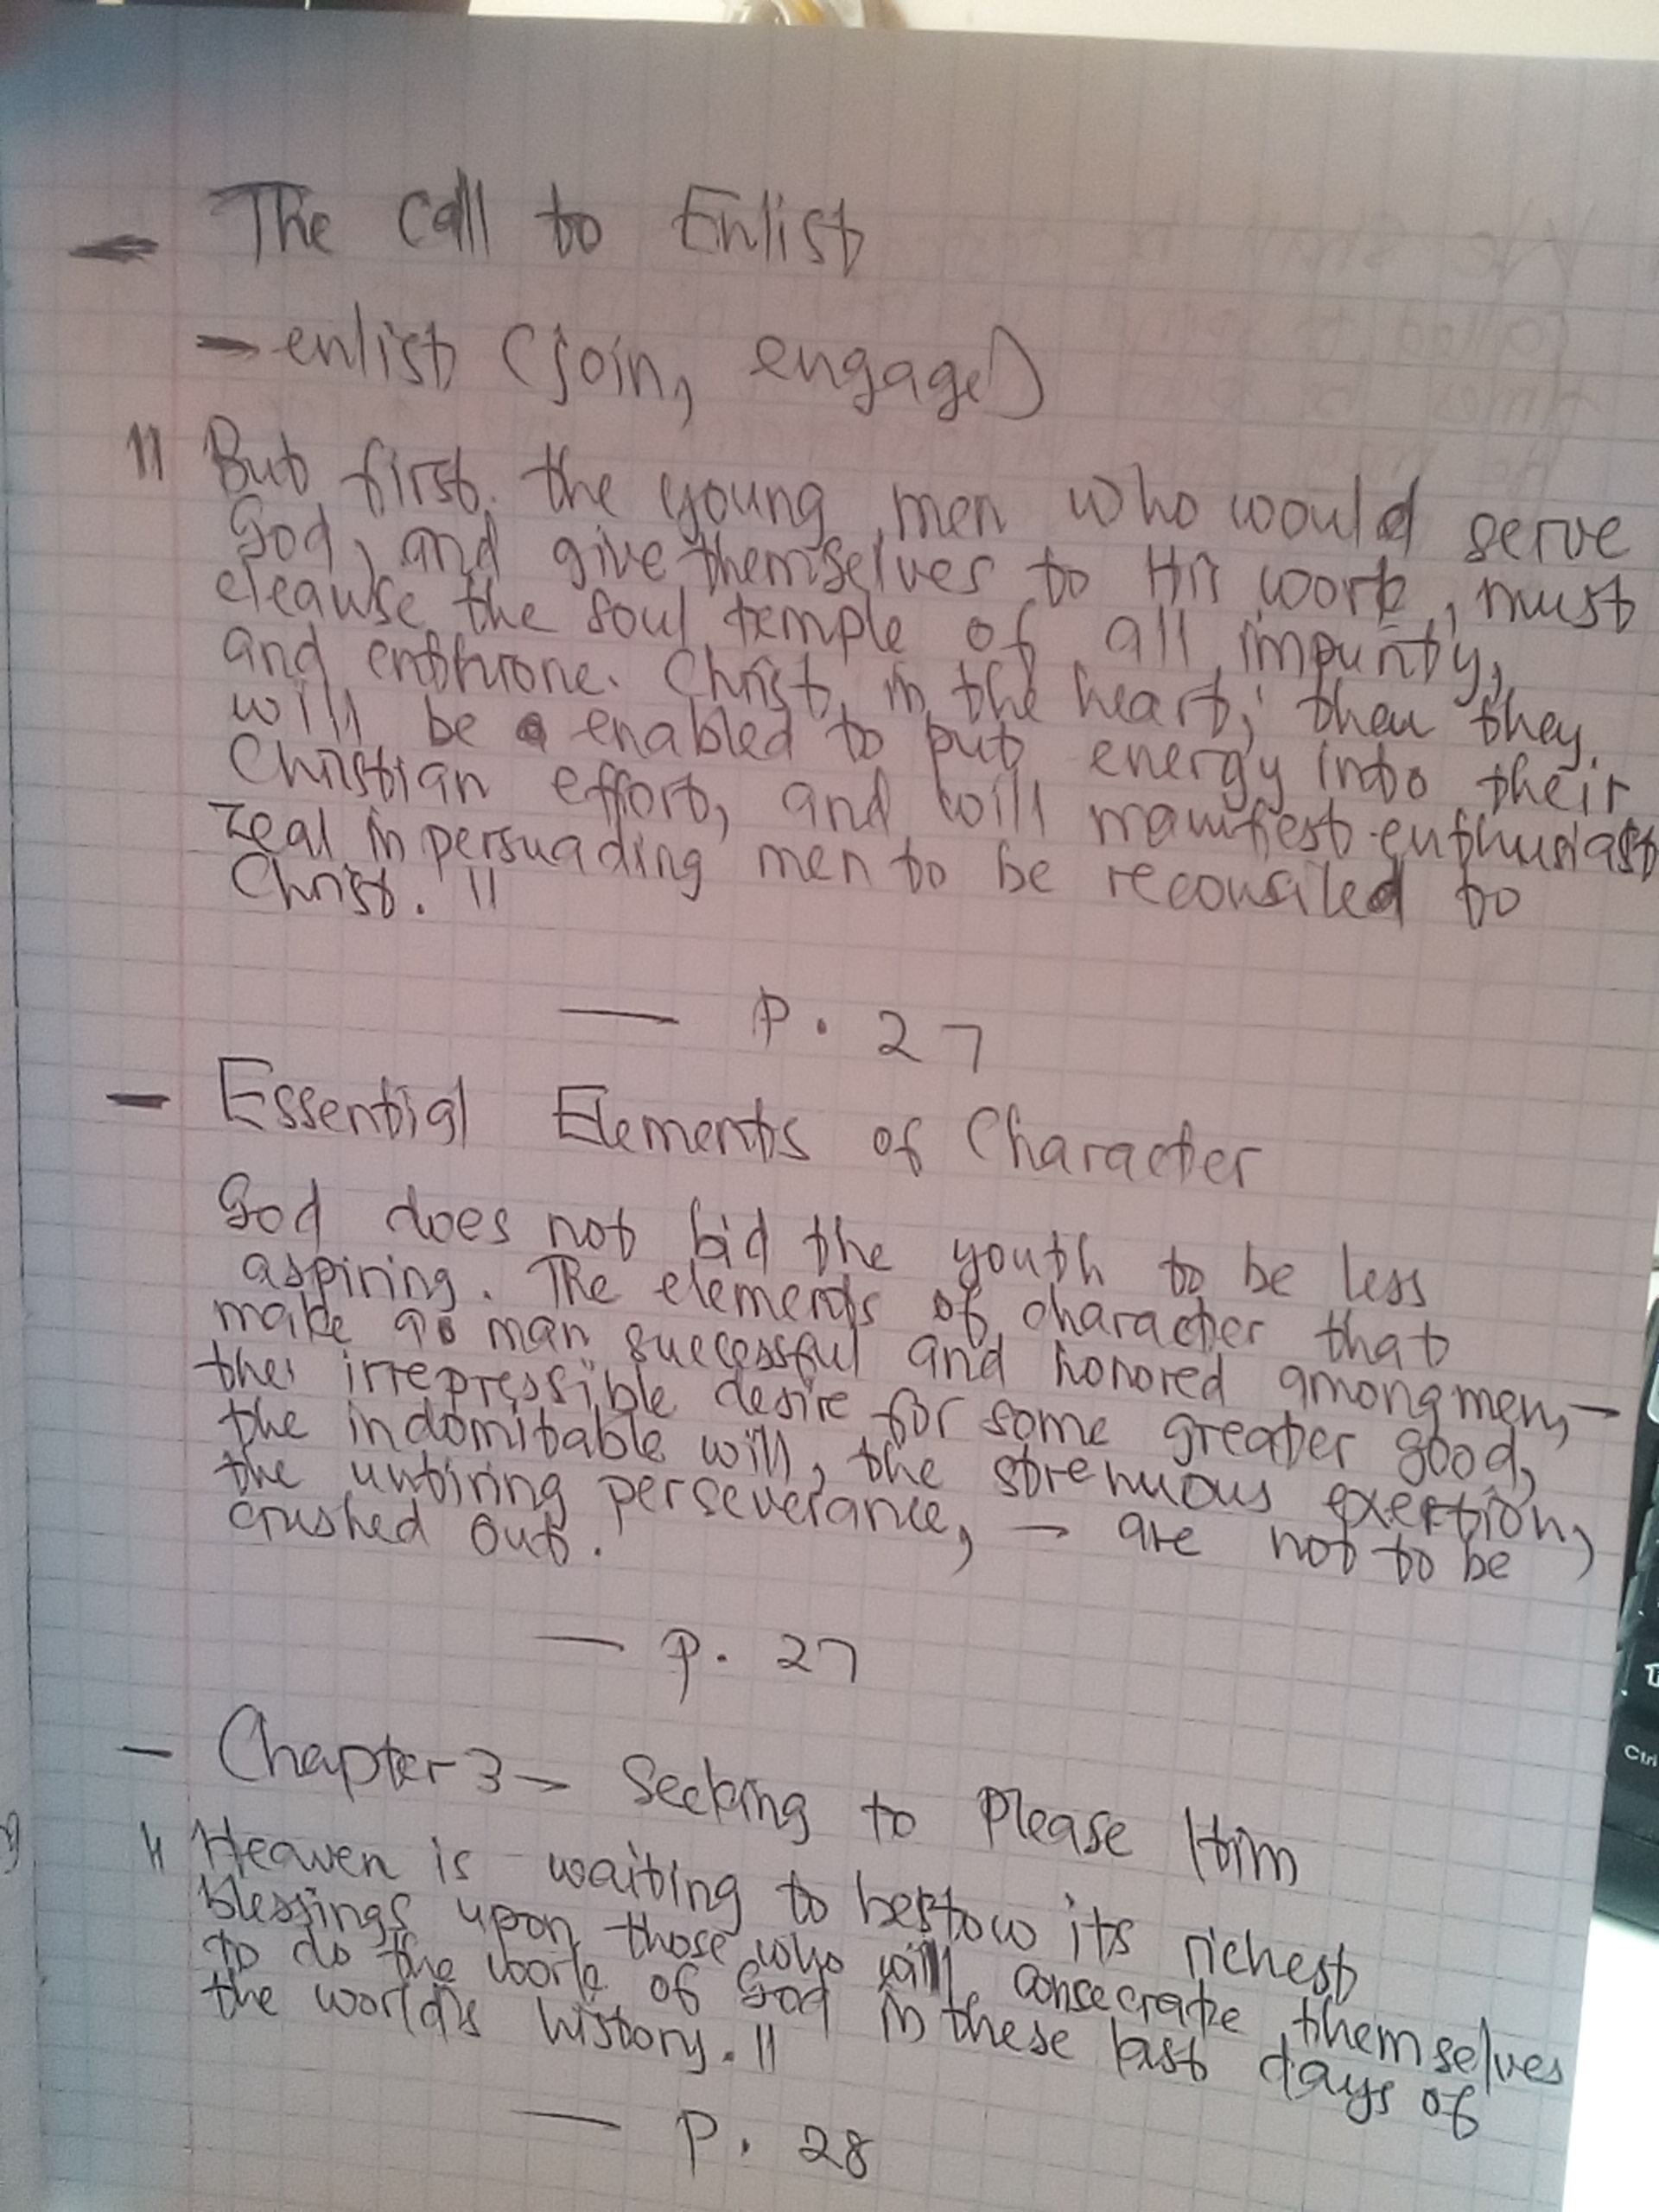 - The Call to Enlist
- enlist (join, engage)
" But first. the young men who would serve
God, and give themselves to His work, must
cleanse the soul temple of all impurity,
and enthrone. Christ in the heart; then they
will be enabled to put energy into their
Christian effort, and will manifest enthusiast
zeal in persuading men to be reconsiled to
Christ. "
— P. 27
- Essential Elements of Character
God does not bid the youth to be less
aspiring. The elements of character that
make a man successful and honored among men, -
the irrepressible desire for some greater good,
the indomitable will, the strenuous exertion,
the untiring perseverance, - are not to be
crushed out.
— p. 27
- Chapter 3 - Seeking to Please Him
" Heaven is waiting to bestow its richest
blessings upon those who will consecrate themselves
to do the work of God in these last days of
the world's history. "
— P. 28
Ctrl